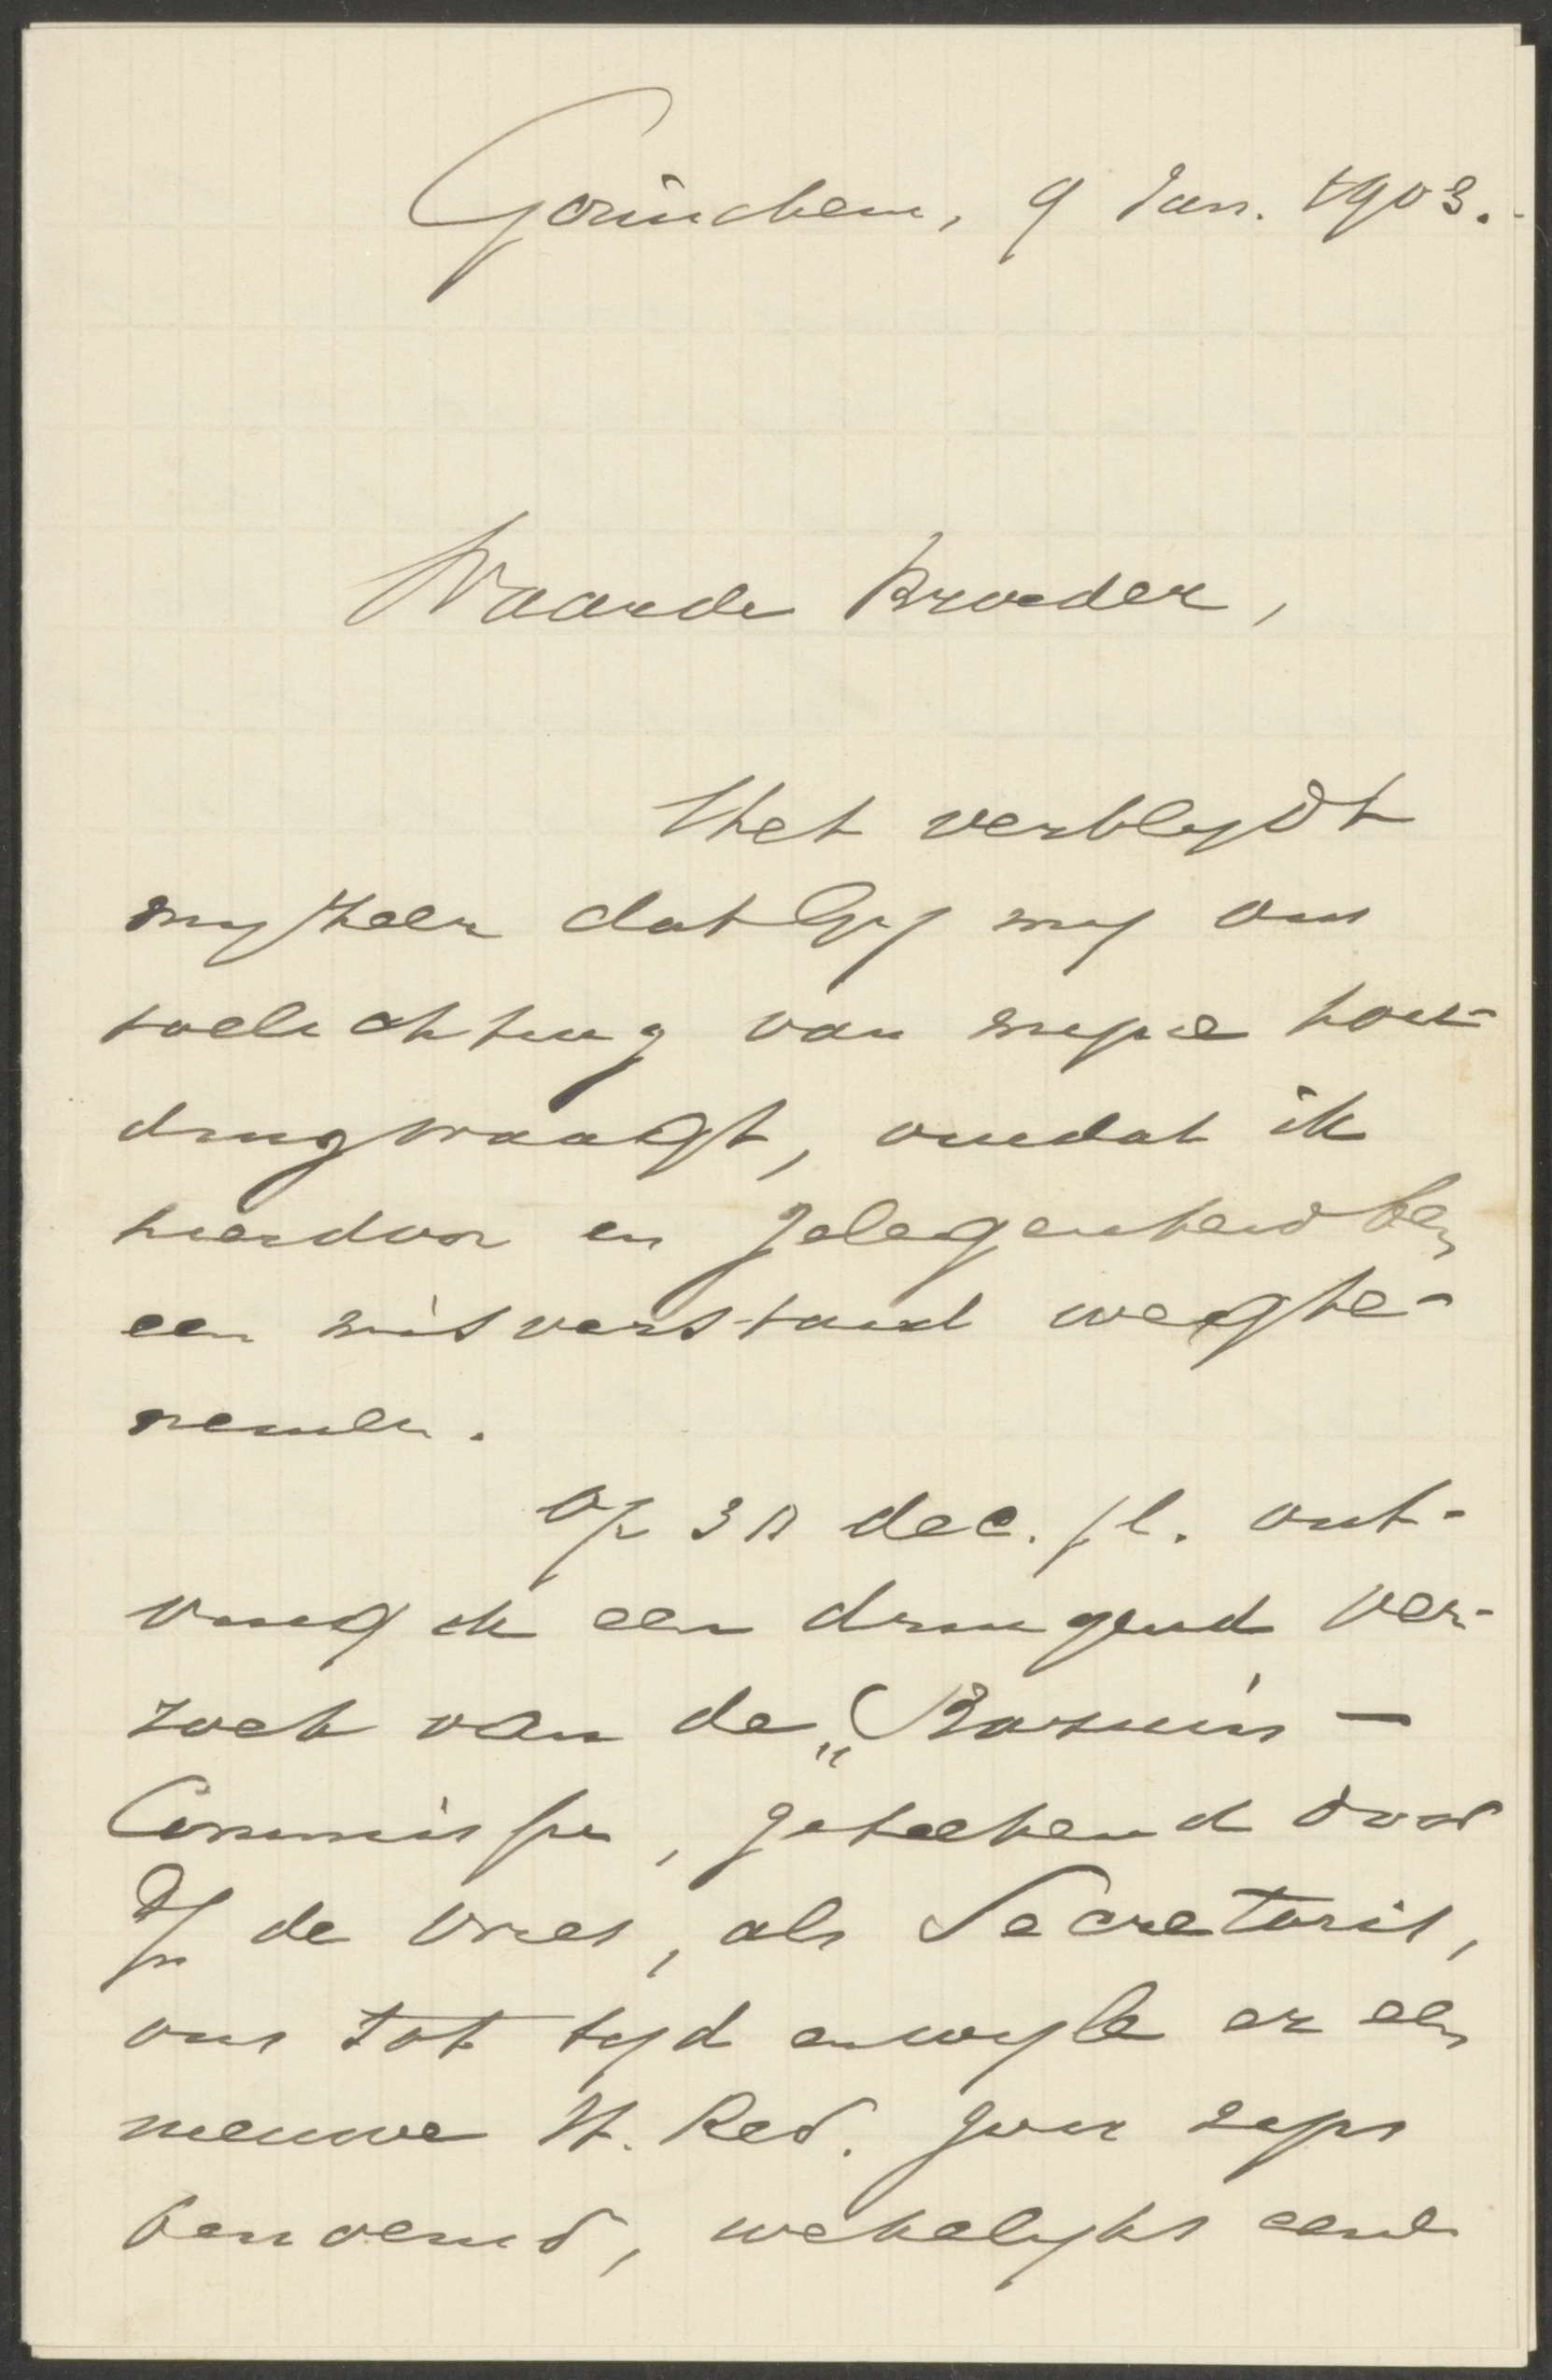 Gorinchem, 9 Jan. 1903.
Waarde Broeder,
Het verblijdt
mij zeer dat Gij mij om
toelichting van mijne hou-
ding vraagt, omdat ik
hierdoor in gelegenheid ben
een misverstand weg te
nemen.
Op 30 dec. jl. ont-
ving ik een dringend ver-
zoek van de „Bazuin –
Commissie, geteekend door
de Vries, als Secretaris,
om tot tijd en wijle er een
nieuwe H. Red. zou zijn
benoemd, wekelijks eene